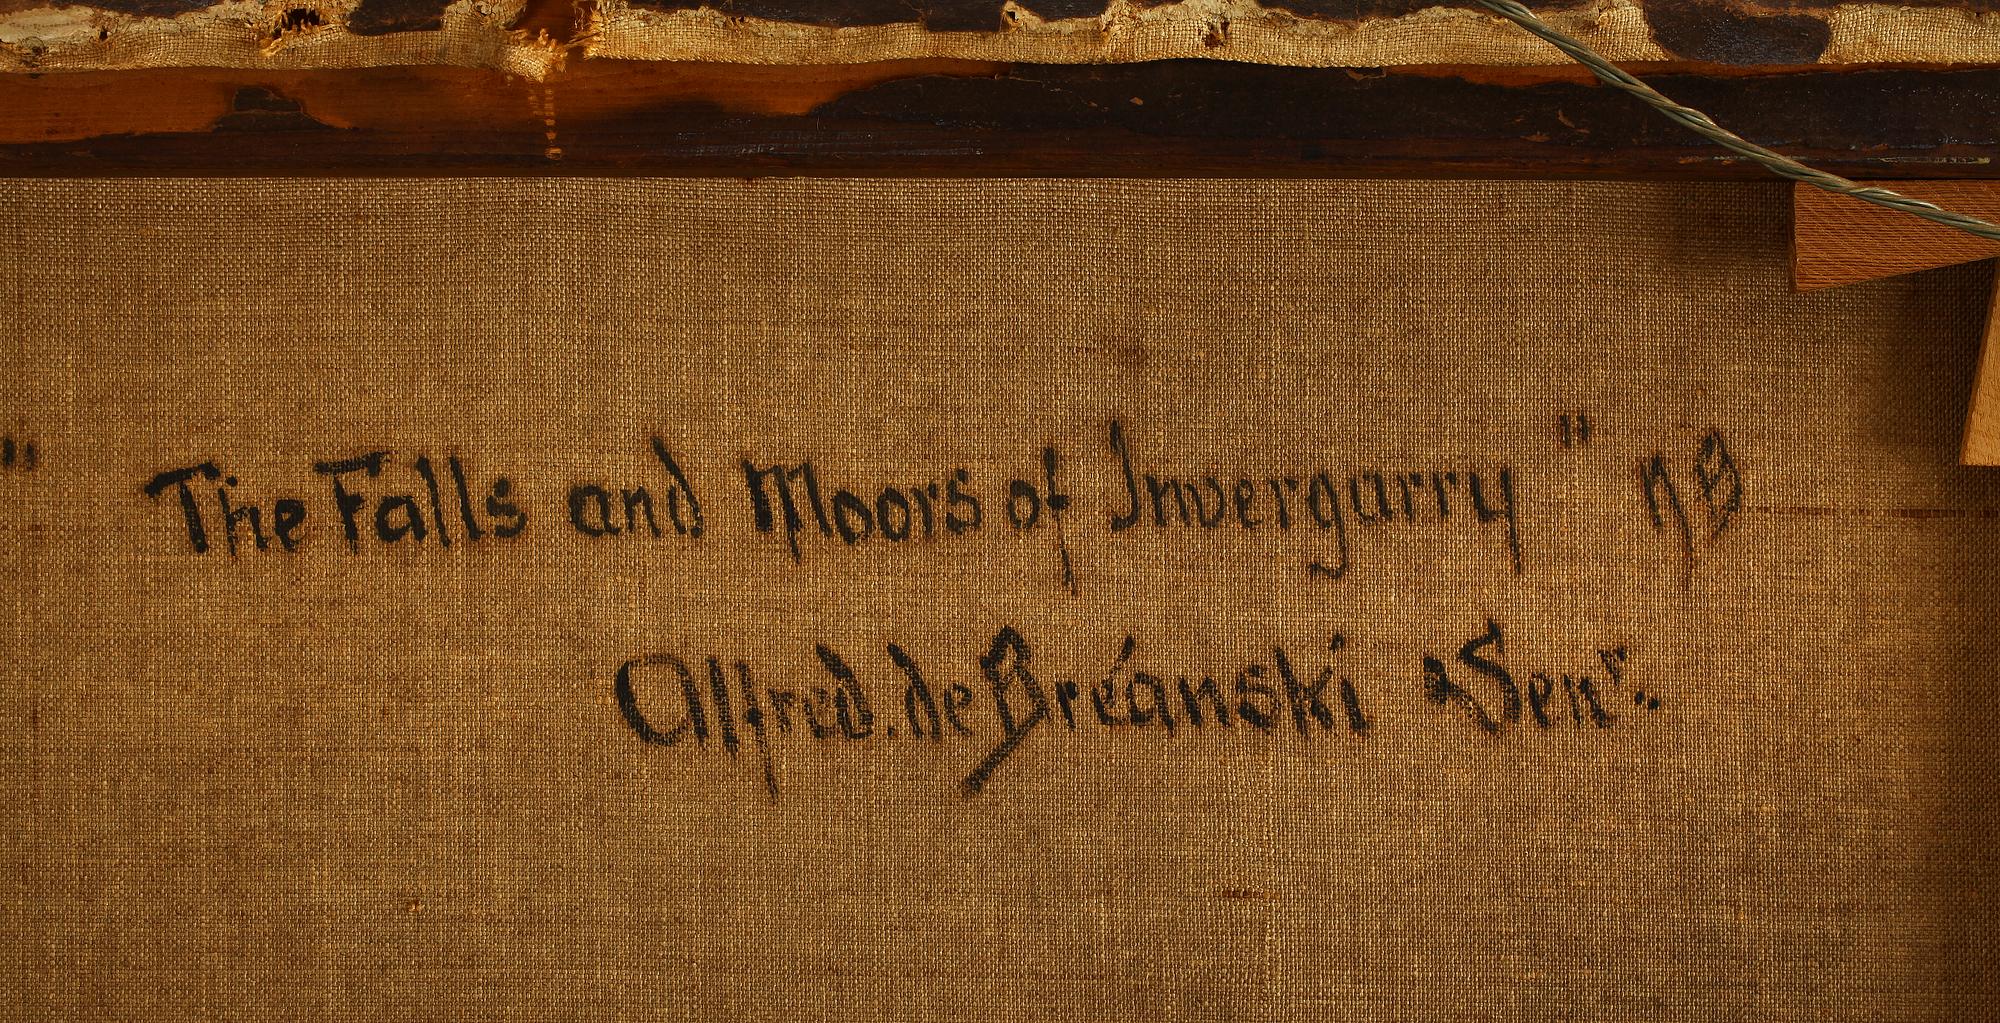 " The Falls and Moors of Invergarry " NB
Alfred. de Bréanski Senr.